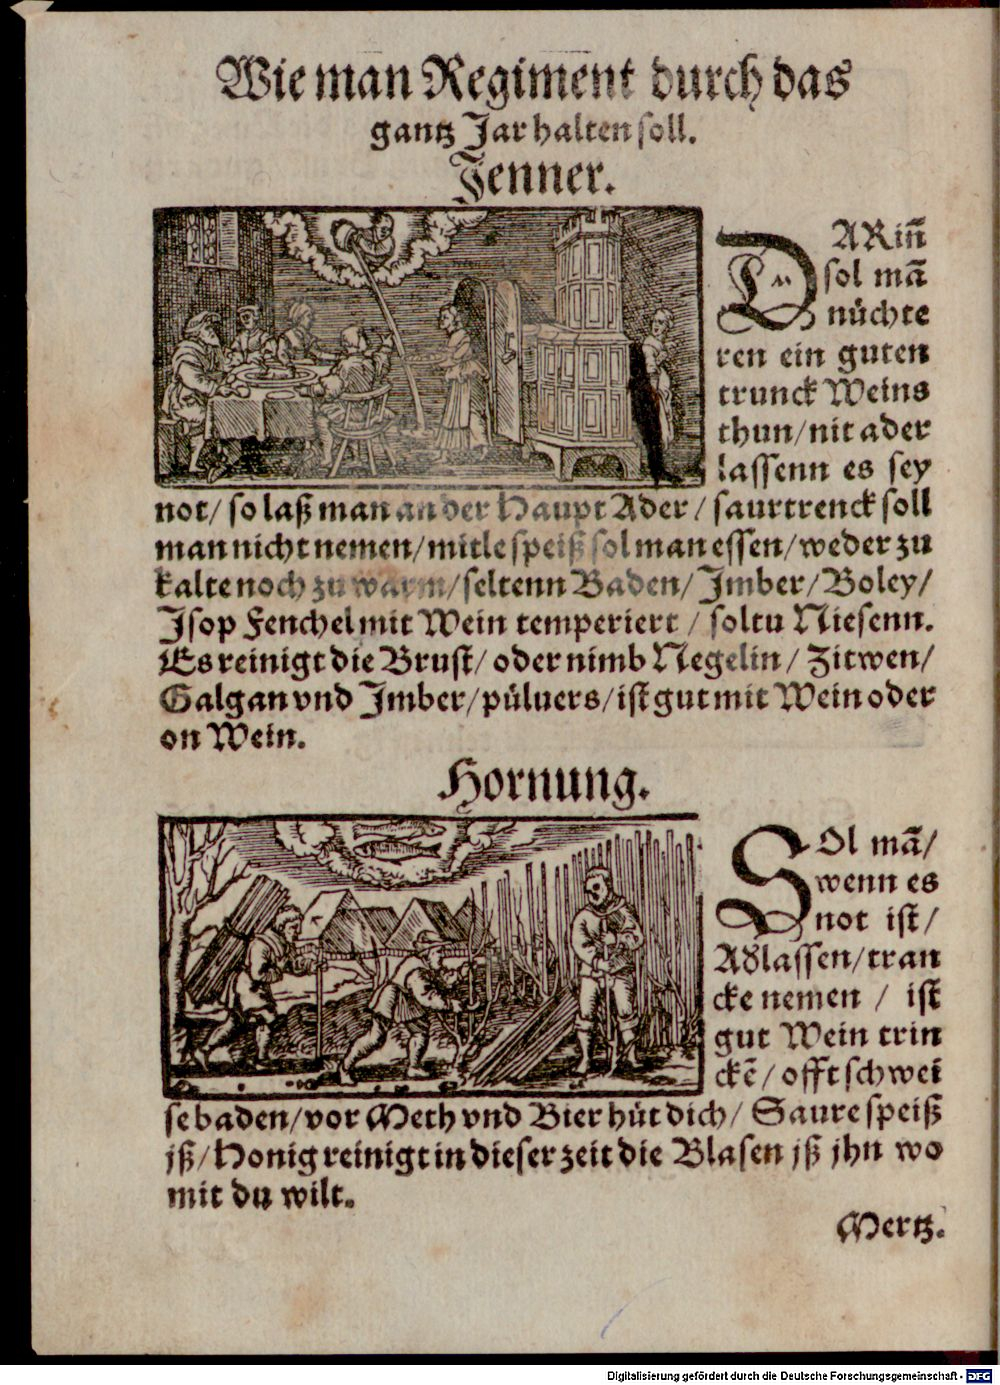 Wie man Regiment durch das
gantz Jar halten soll.
Jenner.
DARiñ
sol mã
nüchte
ren ein guten
trunck Weins
thun/nit ader
lassenn es sey
not/ so laß man an der Haupt Ader/ saurtrenck soll
man nicht nemen/mitle speiß sol man essen/weder zu
kalte noch zu warm/seltenn Baden/Jmber/Boley/
Jsop Fenchel mit Wein temperiert/ soltu Niesenn.
Es reinigt die Brust/ oder nimb Negelin/ Zitwen/
Galgan vnd Jmber/pülvers/ist gut mit Wein oder
on Wein.
Hornung.
SOl mã/
wenn es
not ist/
Aderlassen/tran
cke nemen / ist
gut Wein trin
ckẽ/offt schwei
se baden/vor Meth vnd Bier hüt dich/ Saure speiß
jß/Honig reinigt in dieser zeit die Blasen jß jhn wo
mit du wilt.
Mertz.
Digitalisierung gefördert durch die Deutsche Forschungsgemeinschaft - DFG